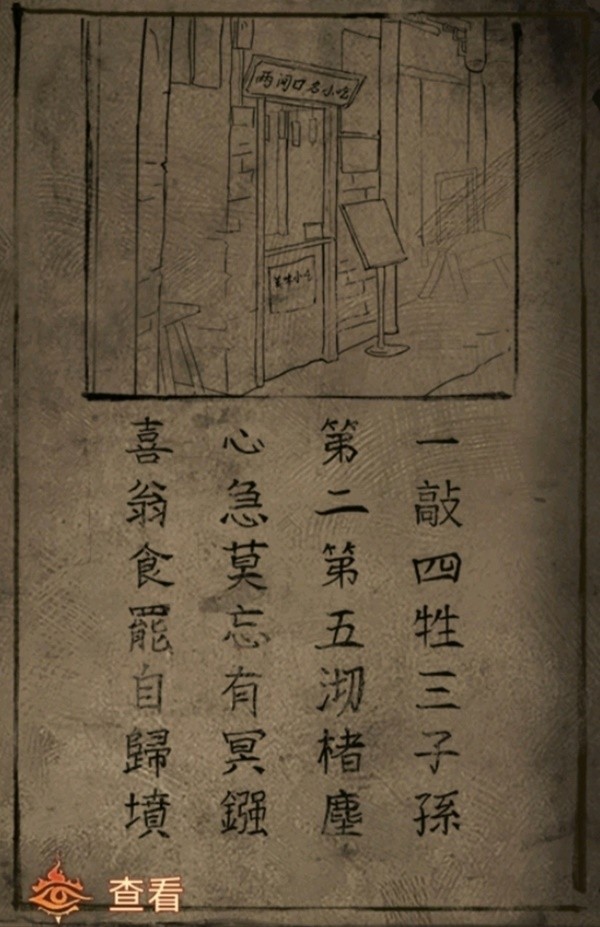 两间口名小吃
美味小吃
一敲四牲三子孫
第二第五沏楮塵
心急莫忘有冥鏹
喜翁食罷自歸墳
查看